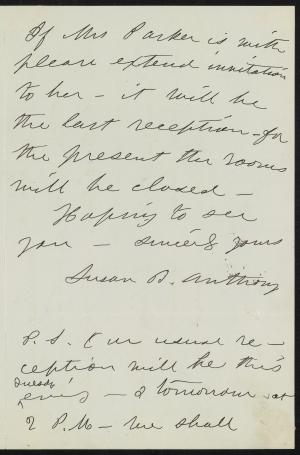 If Mrs Parker is with
please extend invitation
to her - it will be
the last reception - for
the present the rooms
will be closed -
Hoping to see
you - sincerely yours
Susan B. Anthony
P. S. Our usual re-
ception will be this
Tuesday
evenig - & tomorrow at
2 P.M - we shall